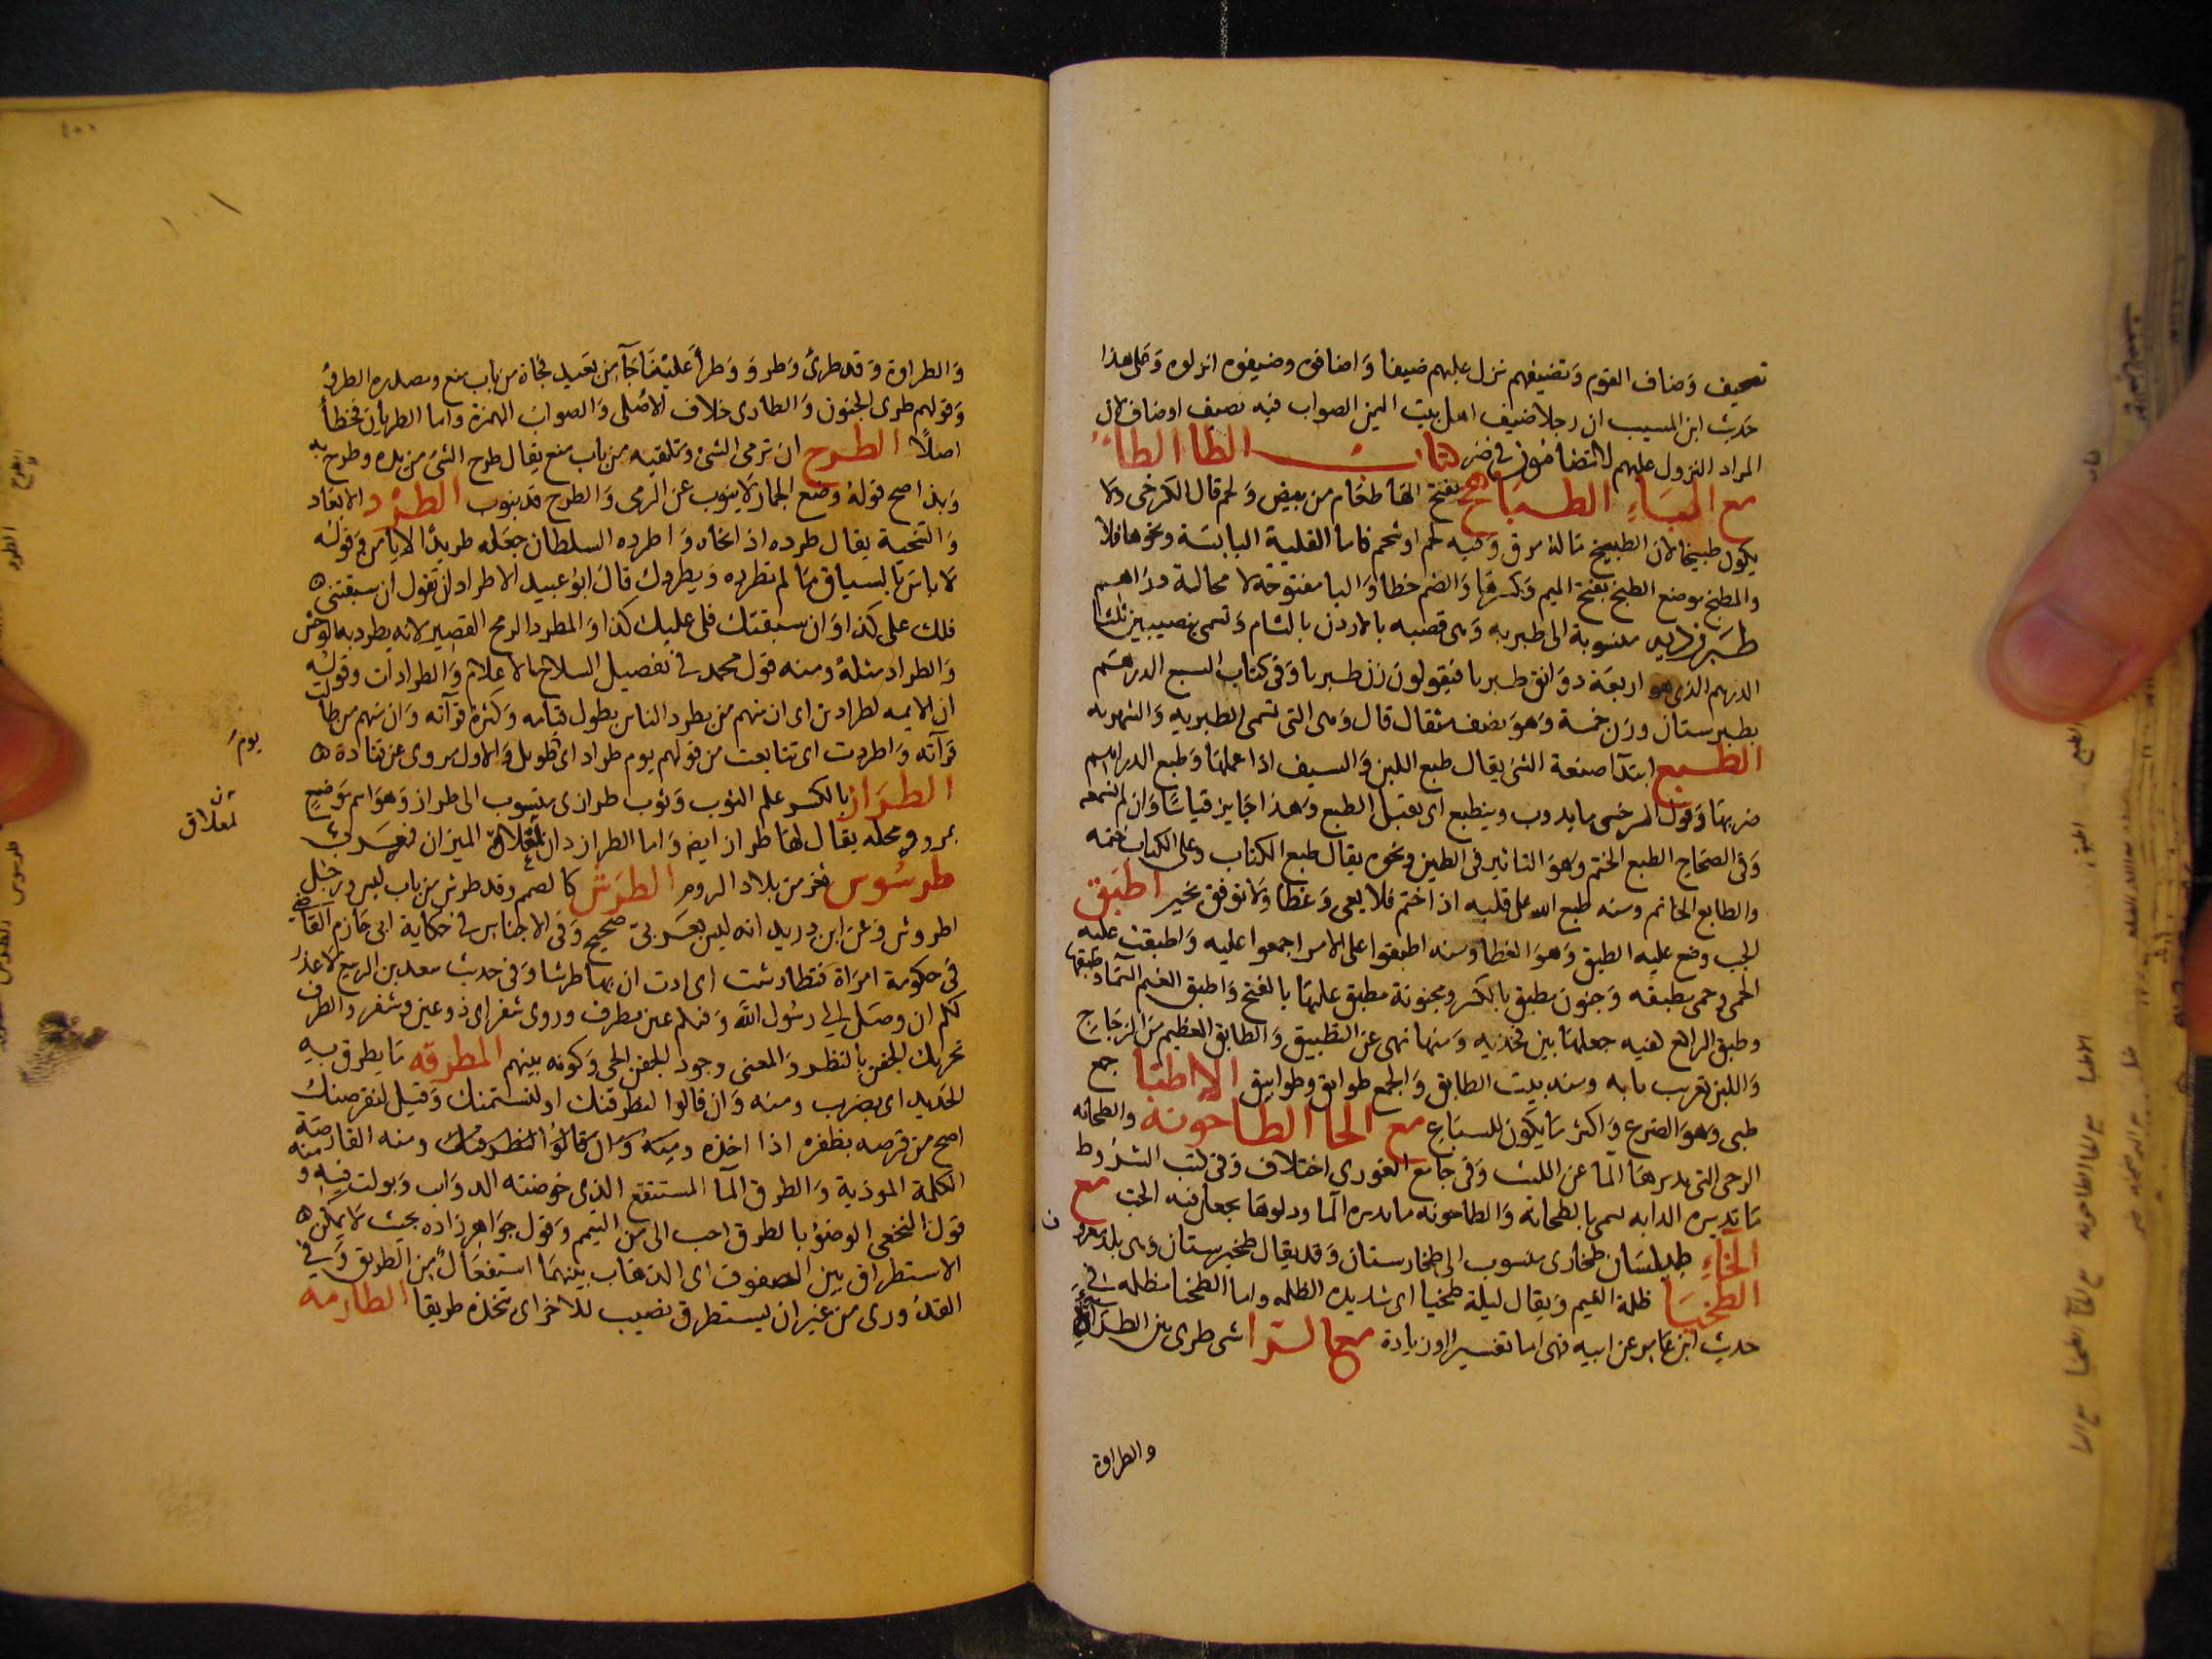 تصحيف وضاف القوم وتضيفهم نزل عليهم ضيفا واضافوه وضيفوه انزلوه وعلى هذا
حديث ابن المسيب ان رجلا ضيف اهل بيت اليمن الصواب فيه تضيف اوضاف لان
المراد النزول عليهم لا تضامون في ضر باب الطا الطاء
مع الباء الطباهج بفتح الها طعام من بيض ولحم قال الكرخى ولا
يكون طبيخا لان الطبيخ ماله مرق وفيه لحم او شحم فاما القلية اليابسة ونحوها فلا
والمطبخ موضع الطبخ بفتح الميم وكسرها والضم خطا والبا مفتوحة لا محالة دراهم
طبرية منسوبة الى طبريه وهى قصبه بالاردن بالشام وتسمى بنصيبين تلك
الدرهم الذى هو اربعة دوانق طبريا فيقولون زن طبريا وفى كتاب السبع الدرهم
بطبرستان وزن خمسة وهو نصف مثقال قال وهى التى تسمى الطبريه والشهريه
الطبع ابتدا صنعة الشئ يقال طبع اللبن والسيف اذا عملها وطبع الدراهم
ضربها وقول السرخسى مايدوب وينطبع اى يقبل الطبع وهذا جايز قياسا وان لم نسمعه
وفى الصحاح الطبع الختم وهو التاثير فى الطين ونحوه يقال طبع الكتاب وعلى الكتاب ختمه
والطابع الخاتم ومنه طبع الله على قلبه اذا ختم فلا يعى وعظا ولا توفق لخير اطبق
الجب وضع عليه الطبق وهو الغطا ومنه اطبقوا على الامر اجمعوا عليه واطبقت عليه
الحمى وحمى مطبقه وجنون مطبق بالكسر ومجنونة مطبق عليها بالفتح واطبق الغيم السما وطبقها
وطبق الراكع كفيه جعلها بين فخذيه ومنها نهى عن التطبيق والطابق العظيم من الزجاج
واللبن تعريب تابه ومنه بيت الطابق والجمع طوابق وطوابيق الاطبا جمع
طبى وهو الضرع واكثر ما يكون للسباع مع الحا الطاحونة والطحانه
الرحى التى يديرها الما عن الليث وفى جامع الغورى اختلاف وفى كتب الشروط
ما تديره الدابه يسمى بالطحانة والطاحونه ما يديره الما ودلوها يجعل فيه الحب مع
الخاء طيلسان طخارى منسوب الى طخارستان وقد يقال طخيرستان وهى بلد معرو
الطخيا ظلة الغيم ويقال ليلة طخيا اى شديدة الظلمه واما الطخيا مظلمه فى
حديث ابن عامر عن ابيه فهى اما تفسير او زيادة مع الرا شى طرى بين الطراءة
والطراوة
والطراوة وقد طرئ وطرو وطرأ علينا جا من بعيد فجاة من باب منع ومصدره الطرؤ
وقولهم طرى الجنون والطارى خلاف الاصلى والصواب الهمزة واما الطريان فخطأ
اصلا الطرح ان ترمى الشئ وتلقيه من باب منع يقال طرح الشئ من يده وطرح به
وبذا صح قوله وضع الجمار لا ينوب عن الرمى والطرح قد ينوب الطرد الابعاد
والتنحية يقال طرده اذا نحاه واطرده السلطان جعله طريدا لا يامن وقوله
لا باس بالسباق ما لم تطرده ويطردك قال ابو عبيد الاطراد ان تقول ان سبقتنى
فلك على كذا وان سبقتك فلى عليك كذا والمطرد الرمح القصير لانه يطرد به الوحش
والطراد مثله ومنه قول محمد فى تفصيل السلاح الاعلام والطرادات وقوله
ان الايمه لطرادين اى ان منهم من يطرد الناس بطول قيامه وكثرة قرآته وان منهم من طالت
قرآته واطردت اى تتابعت من قولهم يوم طراد اى طويل والاول مروى عن قتادة
يوم
الطراز بالكسر علم الثوب وثوب طرازى منسوب الى طراز وهو اسم موضع
بمرو ومحله يقال لها طراز ايض واما الطرازدان لغلاف الميزان فمعرب
لمغلاق
طرسوس ثغر من بلاد الروم الطرش كالصمم وقد طرش من باب لبس ورجل
اطروش وعن ابن دريد انه ليس بعربى صحيح وفى الاجناس فى حكاية ابى حازم القاضى
فى حكومة امراة فتطارشت اى ارت ان بها طرشا وفى حديث سعد بن الربيع لا عذر
لكم ان وصل الى رسول الله وفيكم عين تطرف وروى شفر اى ذو عين وشفر والطرف
تحريك الجفن بالنظر والمعنى وجود الجفن الحى وكونه بينهم المطرقه ما يطرق به
الحديد اى يضرب ومنه وان قالوا لنطرقنك او لنشتمنك وقيل لنقرصنك
اصح من قرصه بظفره اذا اخذه ومنه وان قالوا لنطرقنك ومنه القارصة
الكلمة الموذية والطرق الما المستنقع الذى خوضته الدواب وبولت فيه ومنه
قول النخعى الوضؤ بالطرق احب الى من التيمم وقول جواهرزاده بحيث لا يمكن
الاستطراق بين الصفوف اى الذهاب بينهما استفعال من الطريق وفى
القدورى من غير ان يستطرق نصيب للاخر اى يتخذه طريقا الطارمه